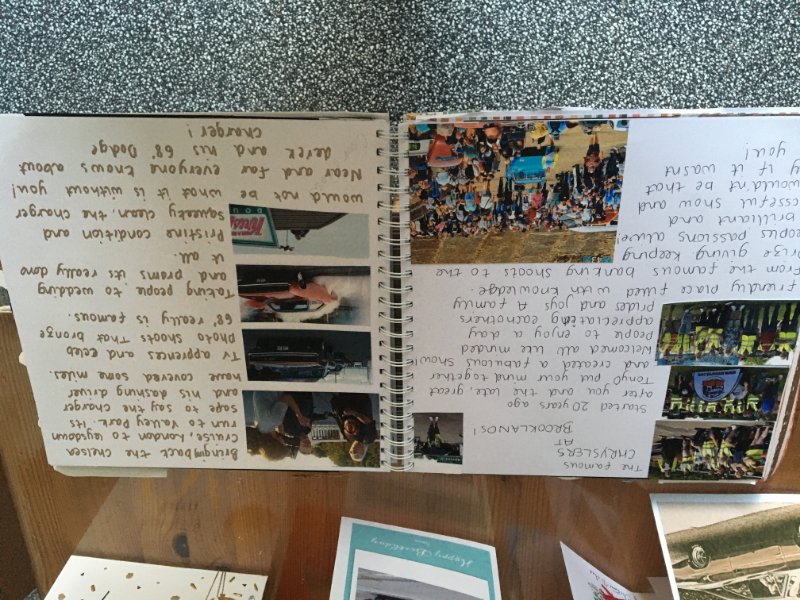 The famous
CHRYSLERS
AT
BROOKLANDS!
Started 20 years ago
after you and the late, great
Tony put your mind together
and created a fabulous show!
Welcomed all like minded
people to enjoy a day
appreciating eachothers
prides and joys A family
friendly place filled with knowledge.
From the famous banking shoots to the
prize giving keeping
peoples passions alive.
brilliant and
cessful show and
wouldnt be that
y if it wasnt
you!
Bringing back the Chelsea
Cruise, London to Laysdown
run to Valley Park. Its
safe to say the Charger
and his dashing driver
have covered some miles.
Tv apprences and celeb
photo shoots That bronze
68" really is famous.
Taking people to wedding
and proms its really done
it all.
Pristing and condition and
squeeky clean the charger
would not be what it is without you!
Near and far everyone knows about
derek and his 68" Dodge
charger!
Happy Birthday